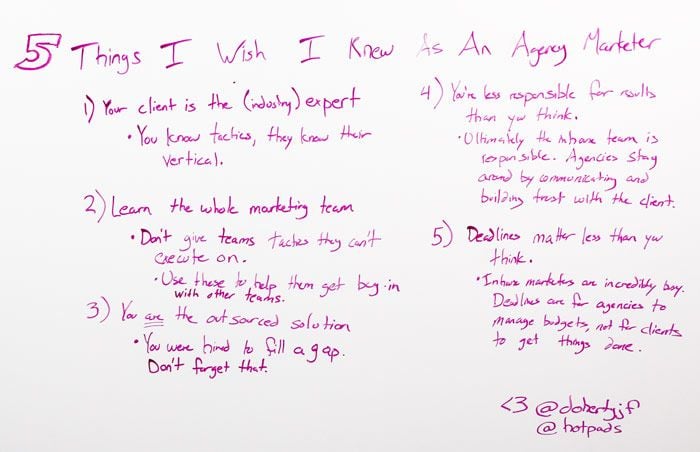 5 Things I Wish I Knew As An Agency Marketer
1) Your client is the (industry) expert
• You know tactics, they know their
vertical.
2) Learn the whole marketing team
• Don't give teams tactics they can't
execute on.
• Use these to help them get buy-in
with other teams.
3) You are the outsourced solution
• You were hired to fill a gap.
Don't forget that.
4) You're less responsible for results
than you think.
• Ultimately the inhouse team is
responsible. Agencies stay
around by communicating and
building trust with the client.
5) Deadlines matter less than you
think.
• Inhouse marketers are incredibly busy.
Deadlines are for agencies to
manage budgets, not for clients
to get things done.
<3 @dohertyjf
@hotpads